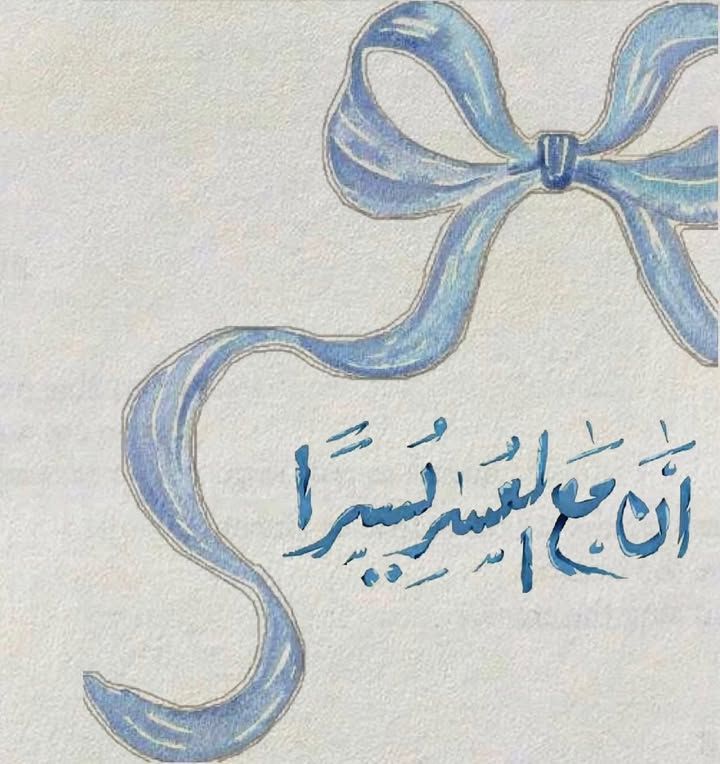 اَنَّ مَعَ العُسْرِ يُسْرًا